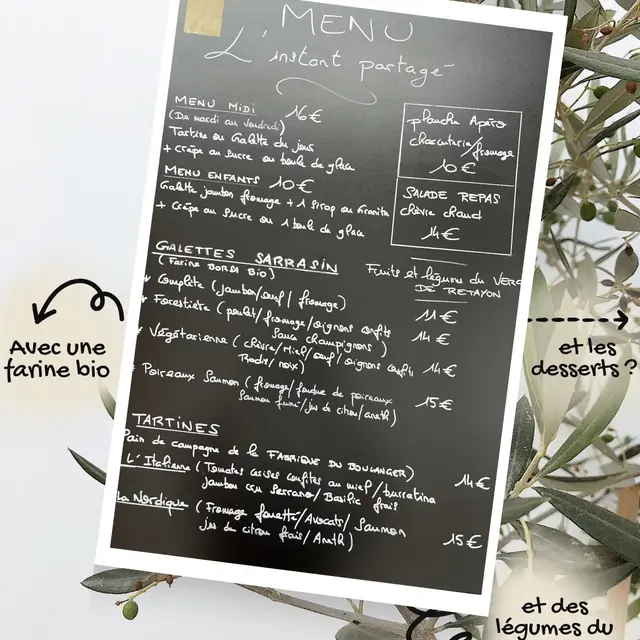 MENU
L'instant partagé
MENU MIDI 16€
(Du mardi au Vendredi)
Tartine ou Galette du jour
+ crêpe au sucre ou boule de glace
MENU ENFANTS 10€
Galette jambon fromage + 1 sirop ou Granita
+ crêpe au sucre ou 1 boule de glace
planche Apéro
charcuterie/fromage
10€
SALADE REPAS
chèvre chaud
14€
GALETTES SARRASIN
(Farine BIO)
Fruits et légumes du VERGER
DE RETAYON
Complète (jambon/œuf/fromage) 11€
Forestière (poulet/fromage/oignons confits 14€
sauce champignons)
Végétarienne (chèvre/Miel/œuf/oignons confits 14€
/noix)
Poireaux Saumon (fromage/fondue de poireaux 15€
Saumon fumé/jus de citron/aneth)
TARTINES
Pain de campagne de la FABRIQUE DU BOULANGER)
L'Italienne (Tomates cerises confites au miel/burratina 14€
jambon cru Serrano/Basilic frais
La Nordique (Fromage fouetté/Avocats/Saumon 15€
jus de citron frais/Aneth)
Avec une
farine bio
et les
desserts ?
et des
légumes du